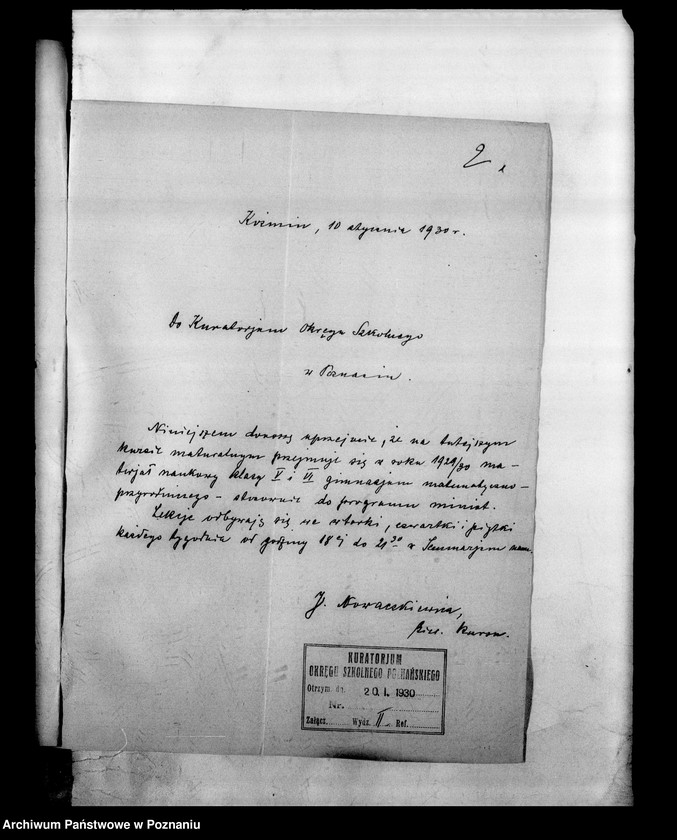 2
Koźmin, 10 stycznia 1930 r.
Do Kuratorjum Okręgu Szkolnego
w Poznaniu.
Niniejszem donoszę uprzejmie, że na tutejszym
kursie maturalnym przejmuje się w roku 1929/30 ma-
terjał naukowy klasy V i VI gimnazjum matematyczno-
przyrodniczego - stosownie do programu minist.
Lekcje odbywają się we wtorki, czwartki i piątki
każdego tygodnia od godziny 18 ej do 21 30 w Seminarjum naucz.
J. Nowaczkiewicz,
kier. kursu.
KURATORJUM
OKRĘGU SZKOLNEGO POZNAŃSKIEGO
Otrzym. dn. 20. I. 1930
Nr.
Załącz. Wydz. II Ref.
Archiwum Państwowe w Poznaniu